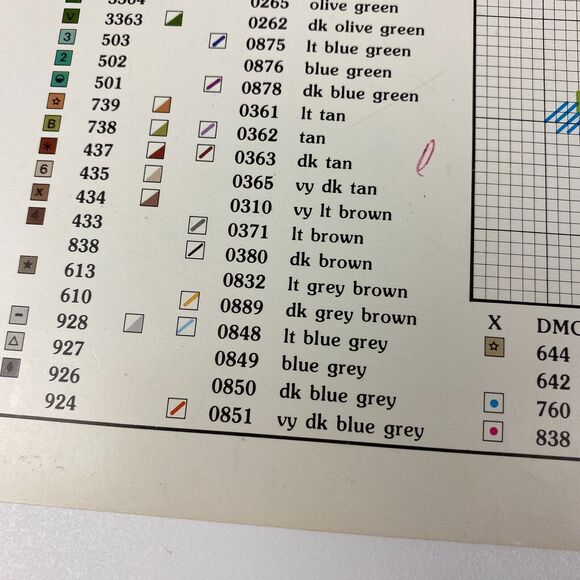 0265 olive green
V 3363 0262 dk olive green
3 503 0875 lt blue green
2 502 0876 blue green
501 0878 dk blue green
739 0361 lt tan
B 738 0362 tan
437 0363 dk tan
6 435 0365 vy dk tan
X 434 0310 vy lt brown
4 433 0371 lt brown
838 0380 dk brown
613 0832 lt grey brown
610 0889 dk grey brown
928 0848 lt blue grey
927 0849 blue grey
926 0850 dk blue grey
924 0851 vy dk blue grey
X DMC
644
642
760
838